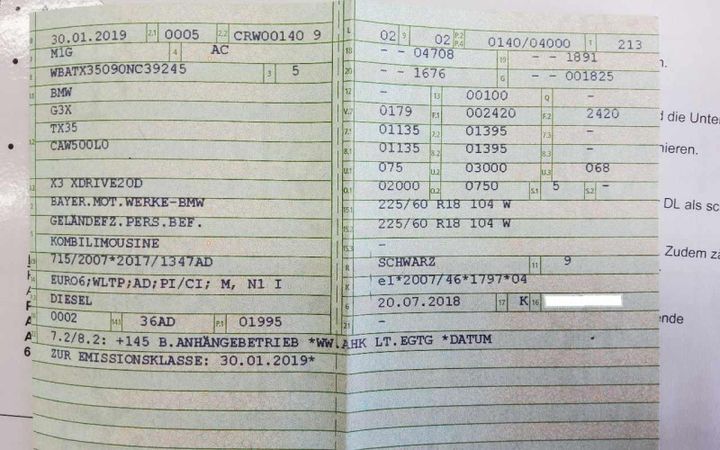 30.01.2019 2.1 0005 2.2 CRW00140 9
M1G 4 AC
WBATX35090NC39245 3 5
BMW
G3X
TX35
CAW500L0
X3 XDRIVE20D
BAYER.MOT.WERKE-BMW
GELÄNDEFZ.PERS.BEF.
KOMBILIMOUSINE
715/2007*2017/1347AD
EURO6;WLTP;AD;PI/CI; M, N1 I
DIESEL
0002 14.1 36AD P.1 01995
L 02 9 02 P.2 P.4 0140/04000 T 213
18 - - 04708 19 - - 1891
20 - - 1676 G - - 001825
12 - 13 00100 Q -
V.7 0179 F.1 002420 F.2 2420
7.1 01135 7.2 01395 7.3 -
8.1 01135 8.2 01395 8.3 -
U.1 075 U.2 03000 U.3 068
O.1 02000 O.2 0750 S.1 5 S.2 -
15.1 225/60 R18 104 W
15.2 225/60 R18 104 W
15.3 -
R SCHWARZ 11 9
K e1*2007/46*1797*04
6 20.07.2018 17 K 16
21 -
7.2/8.2: +145 B.ANHÄNGEBETRIEB *WW.AHK LT.EGTG *DATUM
ZUR EMISSIONSKLASSE: 30.01.2019*
n.
d die Unter
nieren.
DL als sc
Zudem za
ende